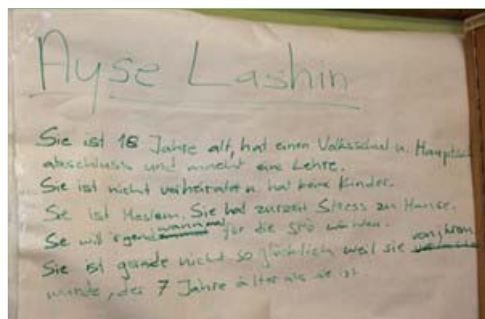 Ayse Lashin
Sie ist 18 Jahre alt, hat einen Volksschul u. Hauptschul
abschluss und macht eine Lehre.
Sie ist nicht verheiratet u. hat keine Kinder.
Sie ist Moslem. Sie hat zurzeit Stress zu Hause.
Sie will irgendwann mal für die SPÖ
Sie ist gerade nicht so glücklich weil sie von ihrem
wurde, der 7 Jahre älter als sie ist.